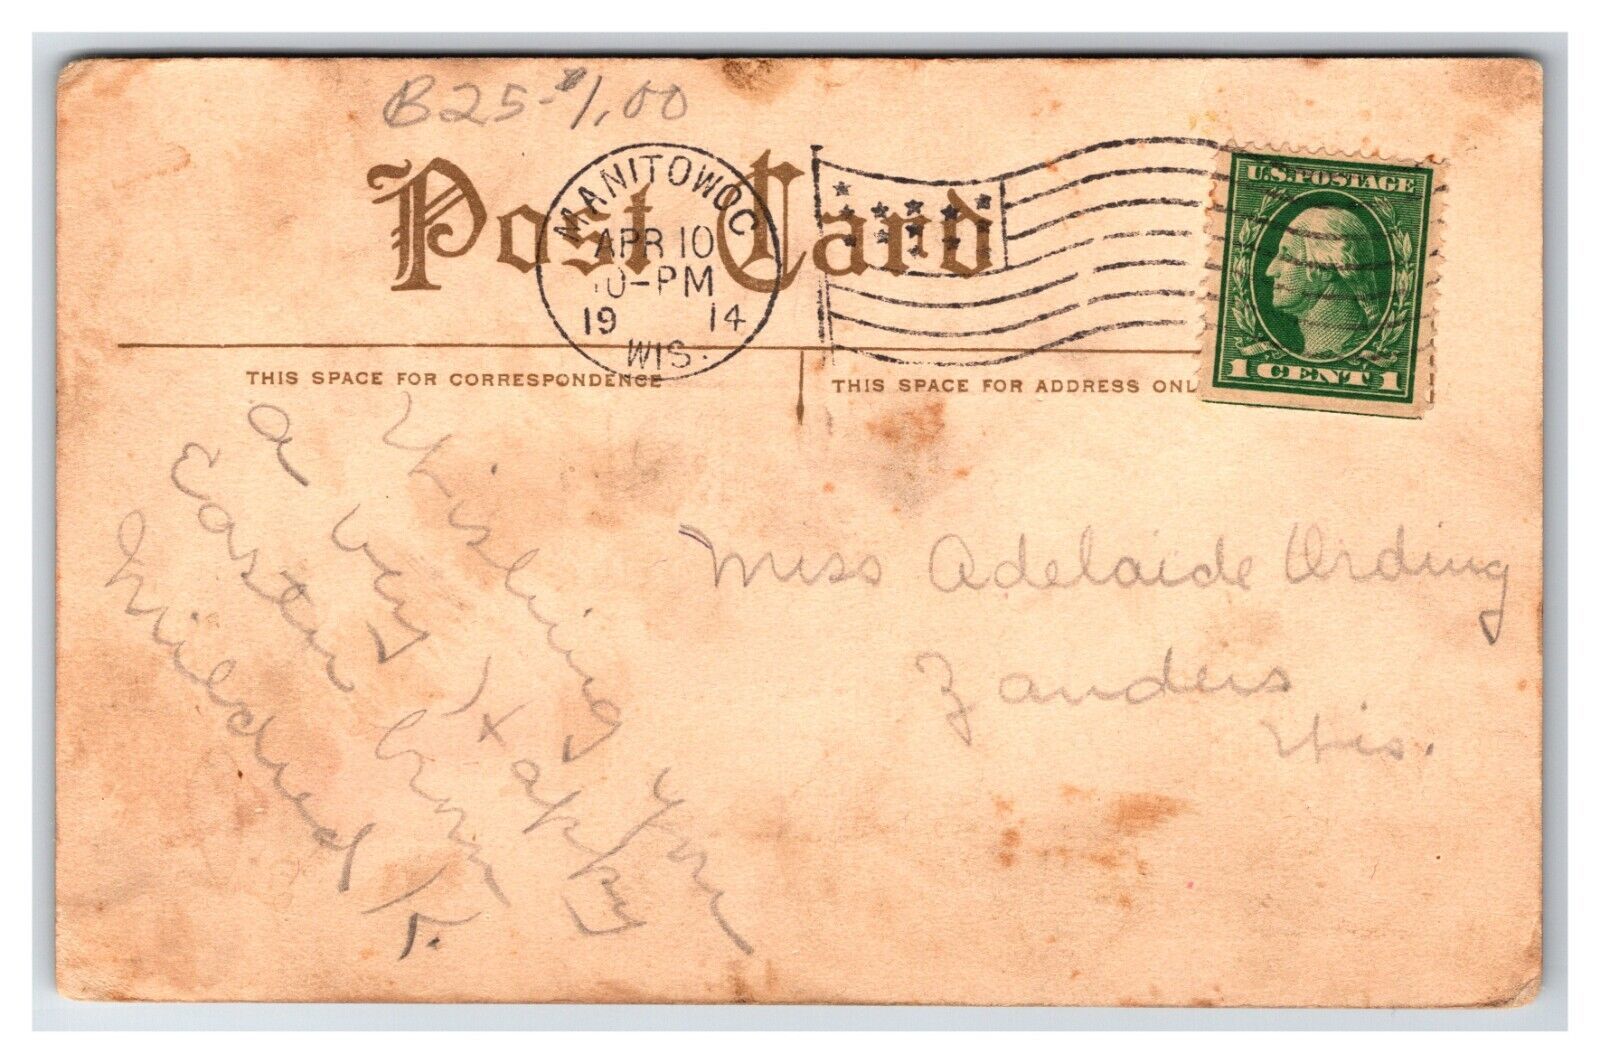 B25-$1,00
Post Card
MANITOWOC
APR 10
10-PM
19 14
WIS.
U.S. POSTAGE
1 CENT 1
THIS SPACE FOR CORRESPONDENCE
THIS SPACE FOR ADDRESS ONL
Wishing you
a very Happy
Easter from
Mildred K.
Miss Adelaide Ording
Zanders
Wis.